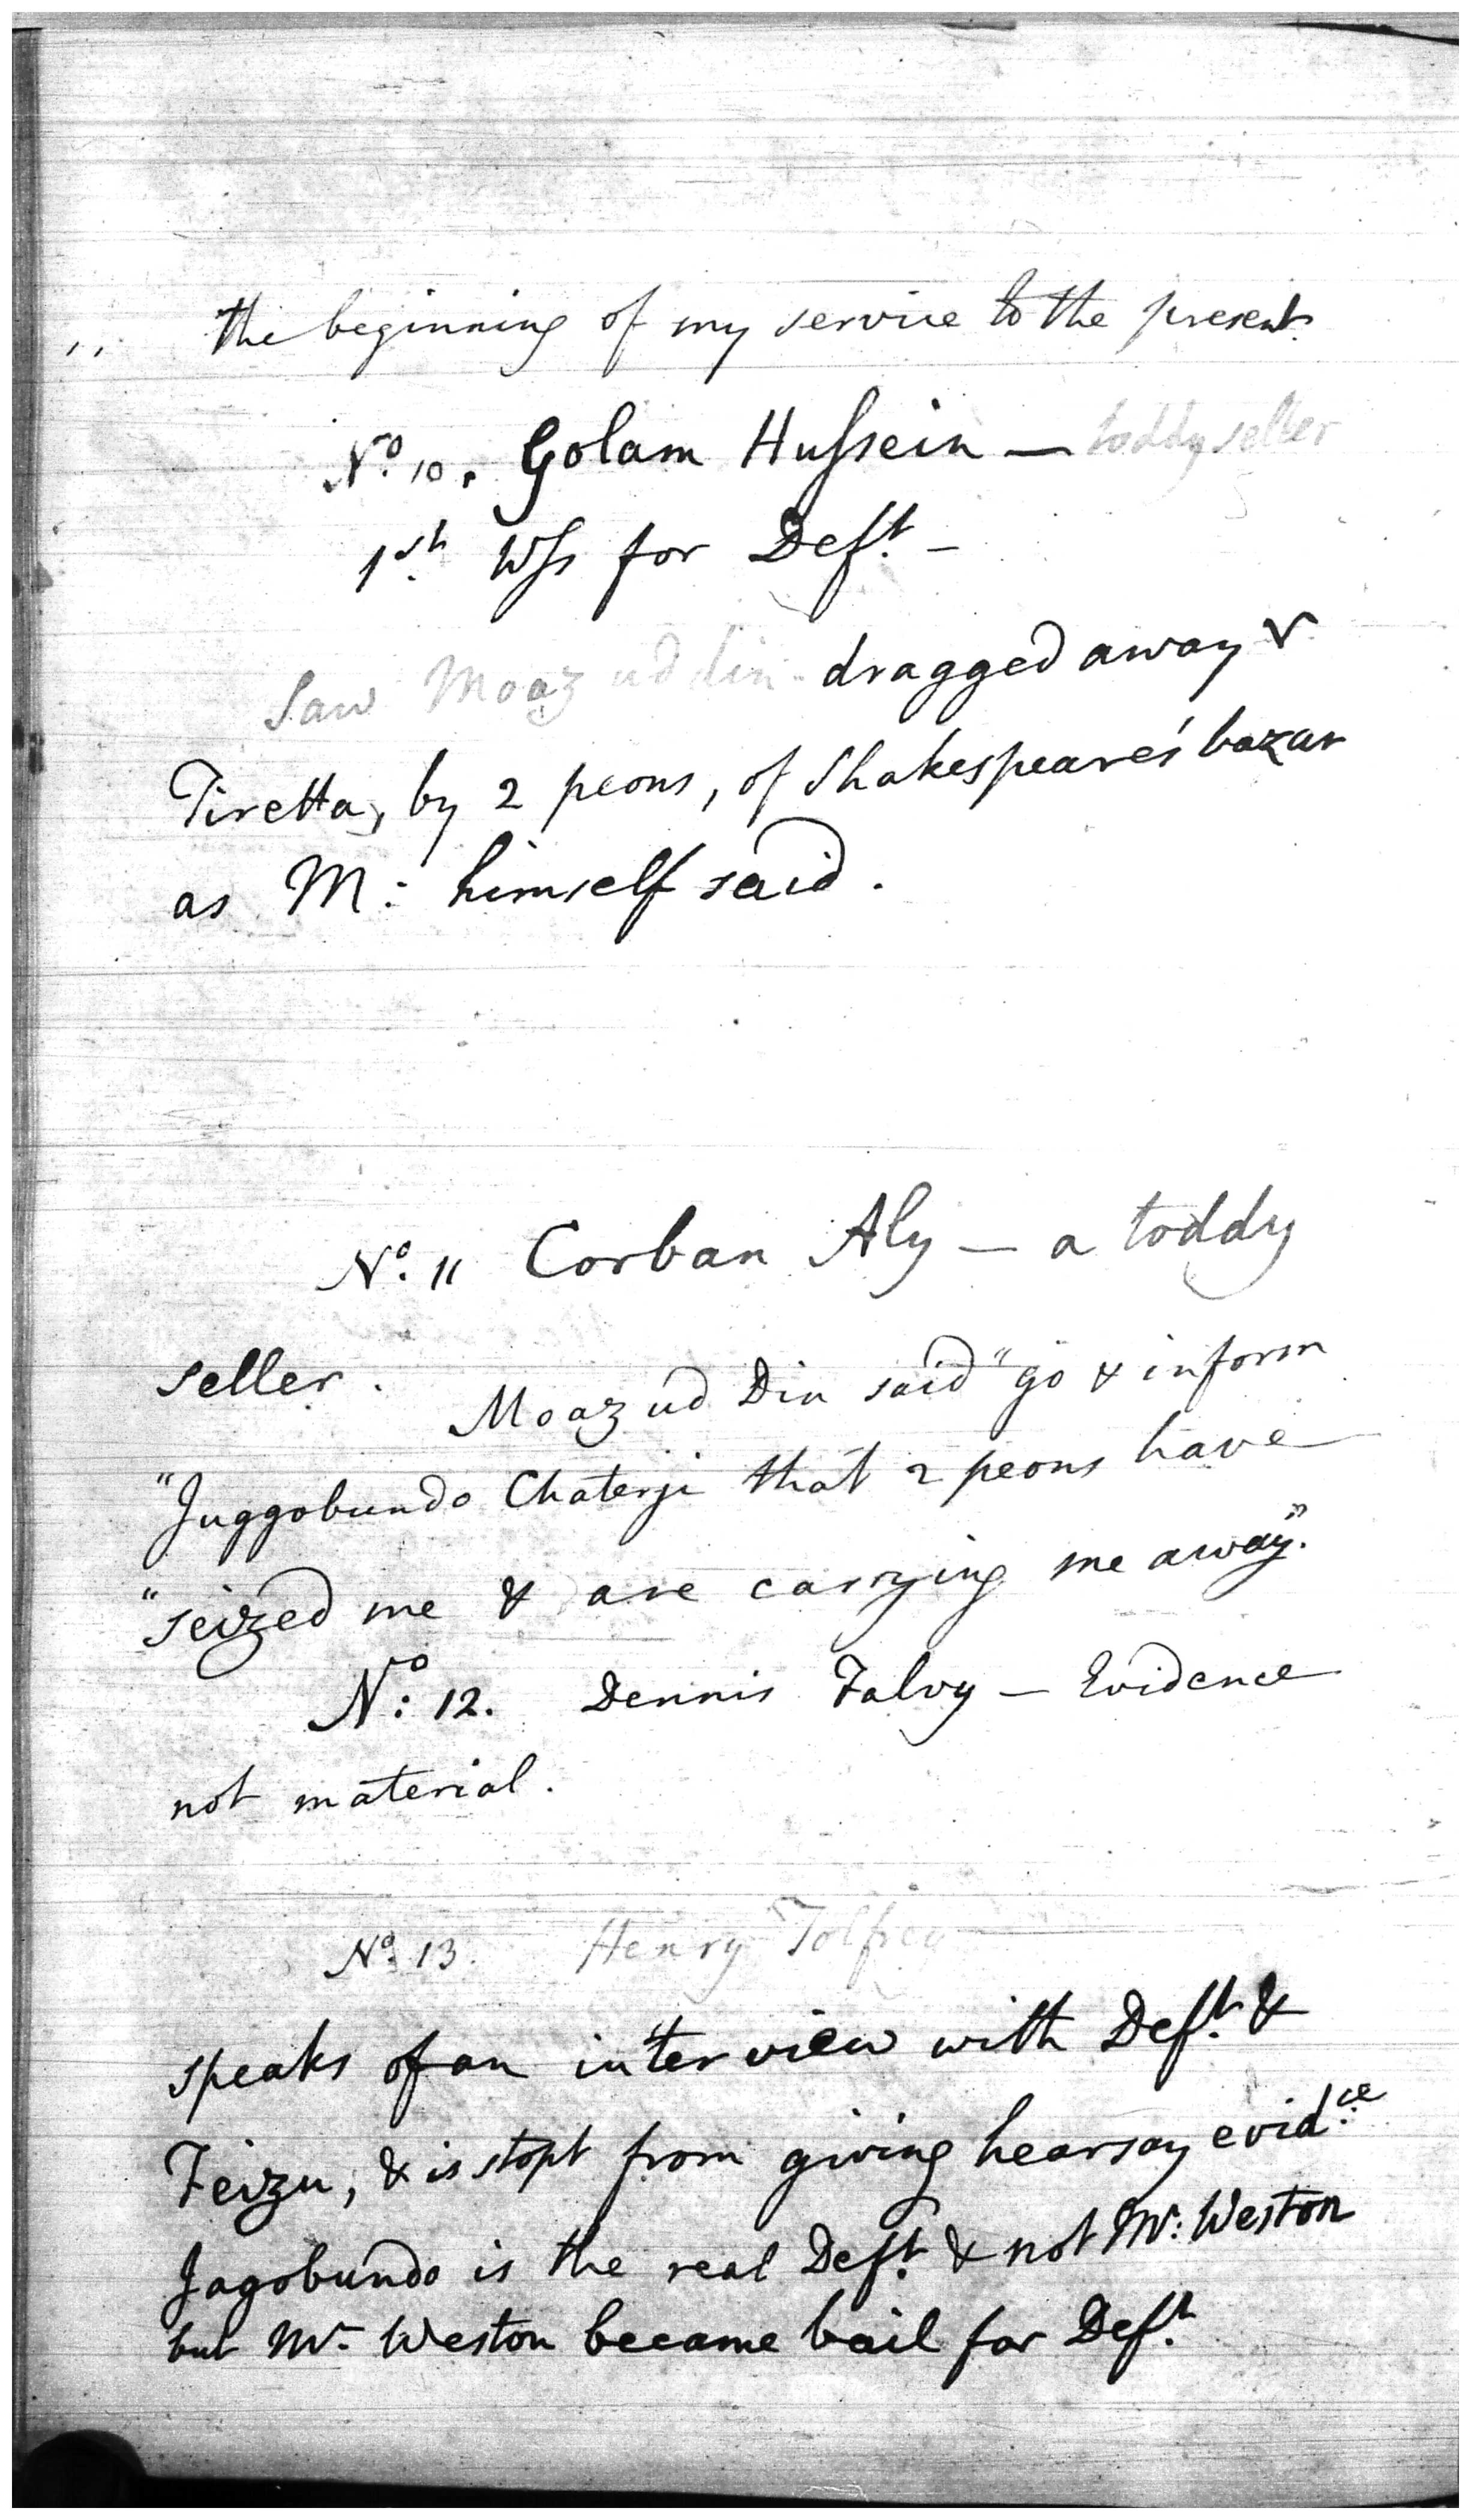 ,, the beginning of my service to the present.
No. 10. Golam Hussein — toddy seller
1st. Wss for Deft. –
Saw Moaz ud din dragged away &
Tiretta, by 2 peons, of Shakespeare's bazar
as M: himself said.
No. 11 Corban Aly — a toddy
seller. Moaz ud Din said "go & inform
"Juggobundo Chaterji that 2 peons have
"seized me & are carrying me away."
No: 12. Dennis Falvy — Evidence
not material.
No. 13. Henry Tolfrey
speaks of an interview with Deft. &
Feizu, & is stopt from giving hearsay evid:ce
Jagobundo is the real Deft. & not Mr: Weston
but Mr. Weston became bail for Deft.